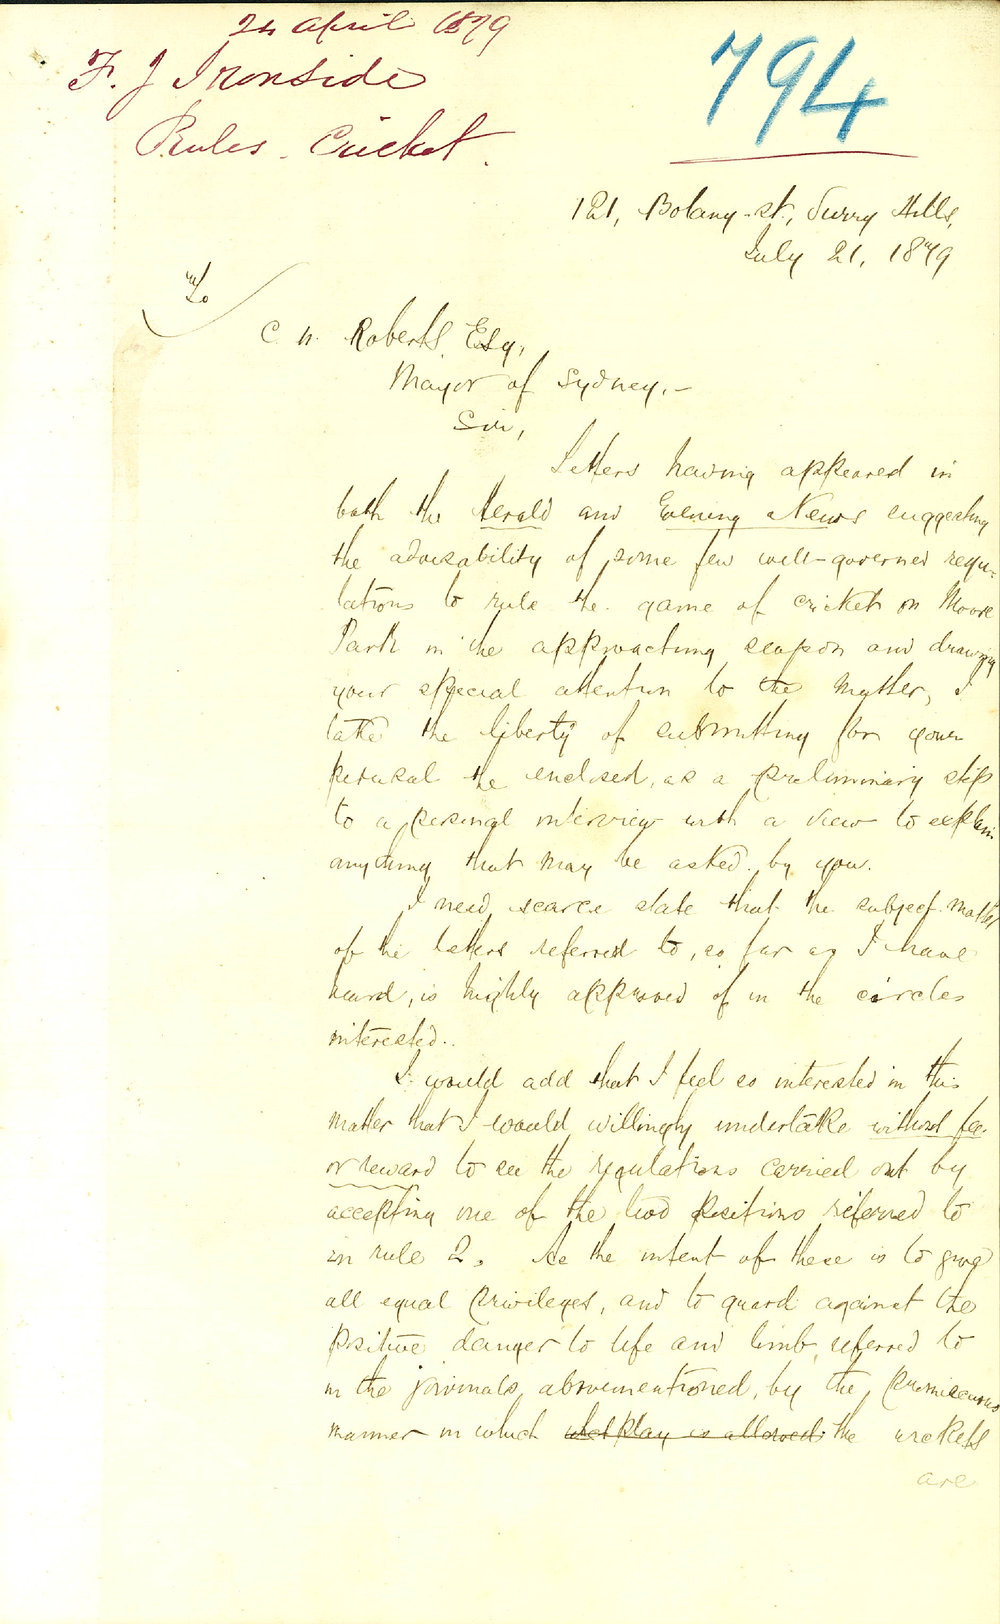 24 April 1879
F. J Ironside
Rules. Cricket.
794
121, Botany-st., Surry Hills,
July 21, 1879
To
C. Roberts Esq,
Mayor of Sydney,-
Sir,
Letters having appeared in
both the Herald and Evening News suggesting
the advisability of some few well-governed regu-
lations to rule the game of cricket on Moore
Park in the approaching season and drawing
your special attention to the matter, I
take the liberty of submitting for your
perusal the enclosed, as a preliminary step
to a personal interview with a view to explain
anything that may be asked by you.
I need scarce state that the subject-matter
of the letters referred to, so far as I have
heard, is highly approved of in the circles
interested..
I would add that I feel so interested in this
matter that I would willingly undertake without fee
or reward to see the regulations carried out by
accepting one of the two positions referred to
in rule 2. As the intent of these is to give
all equal privileges, and to guard against the
positive danger to life and limb, referred to
in the journals, abovementioned, by the promiscuous
manner in which play is allowed the wickets
are